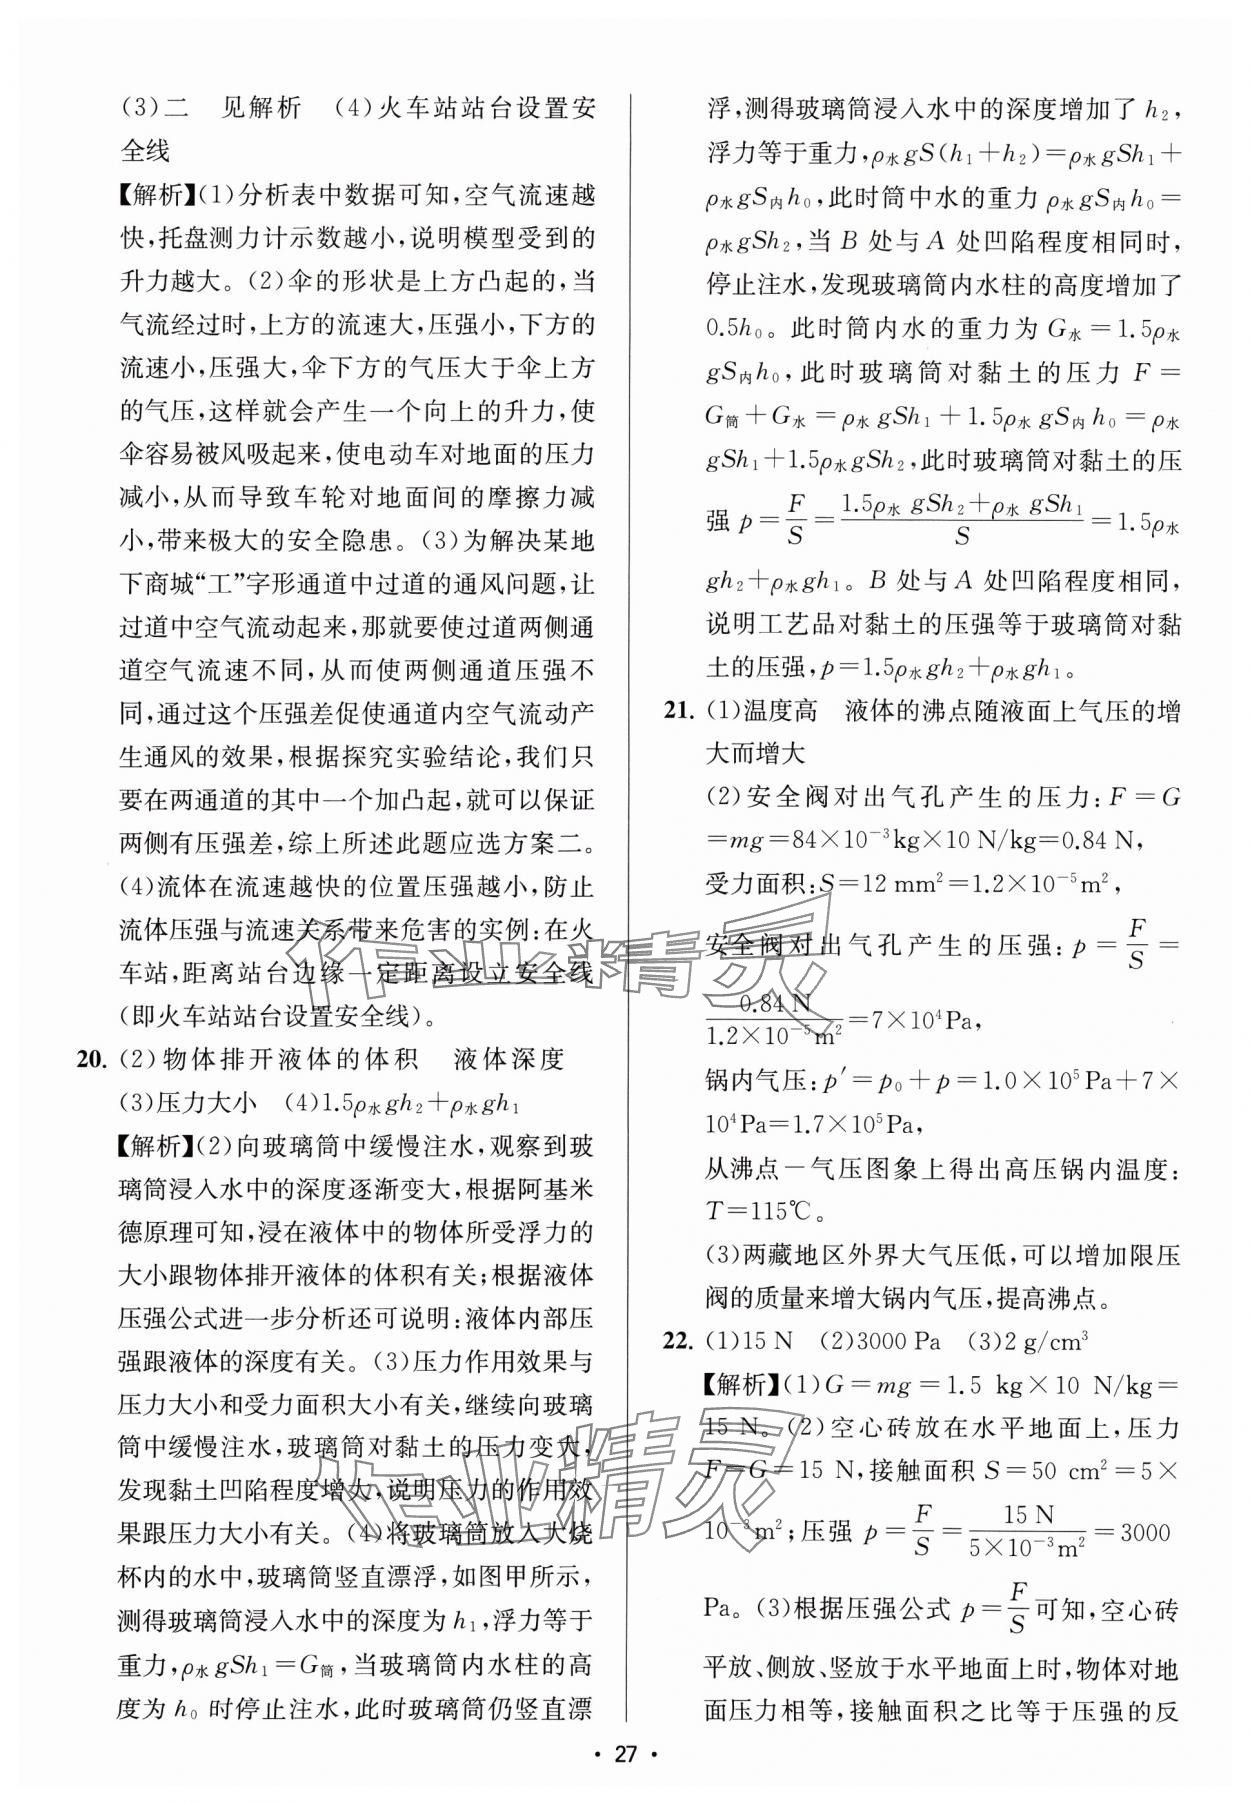 (3)二　见解析　(4)火车站站台设置安
全线
【解析】(1)分析表中数据可知,空气流速越
快,托盘测力计示数越小,说明模型受到的
升力越大。(2)伞的形状是上方凸起的,当
气流经过时,上方的流速大,压强小,下方的
流速小,压强大,伞下方的气压大于伞上方
的气压,这样就会产生一个向上的升力,使
伞容易被风吸起来,使电动车对地面的压力
减小,从而导致车轮对地面间的摩擦力减
小,带来极大的安全隐患。(3)为解决某地
下商城“工”字形通道中过道的通风问题,让
过道中空气流动起来,那就要使过道两侧通
道空气流速不同,从而使两侧通道压强不
同,通过这个压强差促使通道内空气流动产
生通风的效果,根据探究实验结论,我们只
要在两通道的其中一个加凸起,就可以保证
两侧有压强差,综上所述此题应选方案二。
(4)流体在流速越快的位置压强越小,防止
流体压强与流速关系带来危害的实例:在火
车站,距离站台边缘一定距离设立安全线
(即火车站站台设置安全线)。
20. (2)物体排开液体的体积　液体深度
(3)压力大小　(4)1.5ρ水gh₂+ρ水gh₁
【解析】(2)向玻璃筒中缓慢注水,观察到玻
璃筒浸入水中的深度逐渐变大,根据阿基米
德原理可知,浸在液体中的物体所受浮力的
大小跟物体排开液体的体积有关;根据液体
压强公式进一步分析还可说明:液体内部压
强跟液体的深度有关。(3)压力作用效果与
压力大小和受力面积大小有关,继续向玻璃
筒中缓慢注水,玻璃筒对黏土的压力变大,
发现黏土凹陷程度增大,说明压力的作用效
果跟压力大小有关。(4)将玻璃筒放入大烧
杯内的水中,玻璃筒竖直漂浮,如图甲所示,
测得玻璃筒浸入水中的深度为h₁,浮力等于
重力,ρ水gSh₁=G筒,当玻璃筒内水柱的高
度为h₀时停止注水,此时玻璃筒仍竖直漂
浮,测得玻璃筒浸入水中的深度增加了h₂,
浮力等于重力,ρ水gS(h₁+h₂)=ρ水gSh₁+
ρ水gS内h₀,此时筒中水的重力ρ水gS内h₀=
ρ水gSh₂,当B处与A处凹陷程度相同时,
停止注水,发现玻璃筒内水柱的高度增加了
0.5h₀。此时筒内水的重力为G水=1.5ρ水
gS内h₀,此时玻璃筒对黏土的压力F=
G筒+G水=ρ水gSh₁+1.5ρ水gS内h₀=ρ水
gSh₁+1.5ρ水gSh₂,此时玻璃筒对黏土的压
强p=F/S=(1.5ρ水gSh₂+ρ水gSh₁)/S=1.5ρ水
gh₂+ρ水gh₁。B处与A处凹陷程度相同,
说明工艺品对黏土的压强等于玻璃筒对黏
土的压强,p=1.5ρ水gh₂+ρ水gh₁。
21. (1)温度高　液体的沸点随液面上气压的增
大而增大
(2)安全阀对出气孔产生的压力:F=G
=mg=84×10⁻³kg×10 N/kg=0.84 N,
受力面积:S=12 mm²=1.2×10⁻⁵m²,
安全阀对出气孔产生的压强:p=F/S=
0.84 N/(1.2×10⁻⁵m²)=7×10⁴Pa,
锅内气压:p′=p₀+p=1.0×10⁵Pa+7×
10⁴Pa=1.7×10⁵Pa,
从沸点－气压图象上得出高压锅内温度:
T=115℃。
(3)两藏地区外界大气压低,可以增加限压
阀的质量来增大锅内气压,提高沸点。
22. (1)15 N　(2)3000 Pa　(3)2 g/cm³
【解析】(1)G=mg=1.5 kg×10 N/kg=
15 N。(2)空心砖放在水平地面上,压力
F=G=15 N,接触面积S=50 cm²=5×
10⁻³m²;压强p=F/S=15 N/(5×10⁻³m²)=3000
Pa。(3)根据压强公式p=F/S可知,空心砖
平放、侧放、竖放于水平地面上时,物体对地
面压力相等,接触面积之比等于压强的反
• 27 •
作业精灵
作业精灵